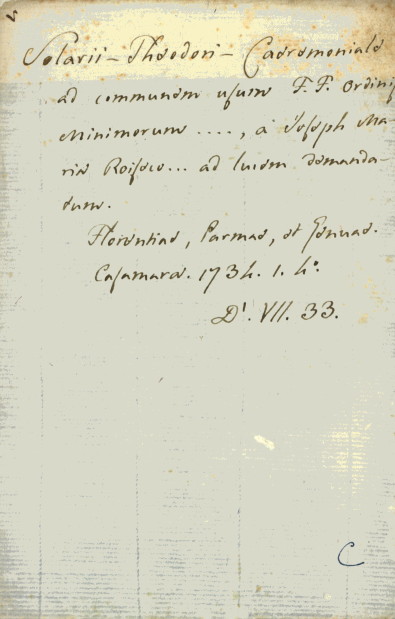 Solarii - Theodori - Caeremoniale
ad communem usum F.F. Ordinis
Minimorum ...., a Joseph Ma-
ria ... ad lucem demanda-
dum.
Florentiae, Parmae, et Genuae.
Casamara. 1734. 1. 4°.
D'. VII. 33.
C